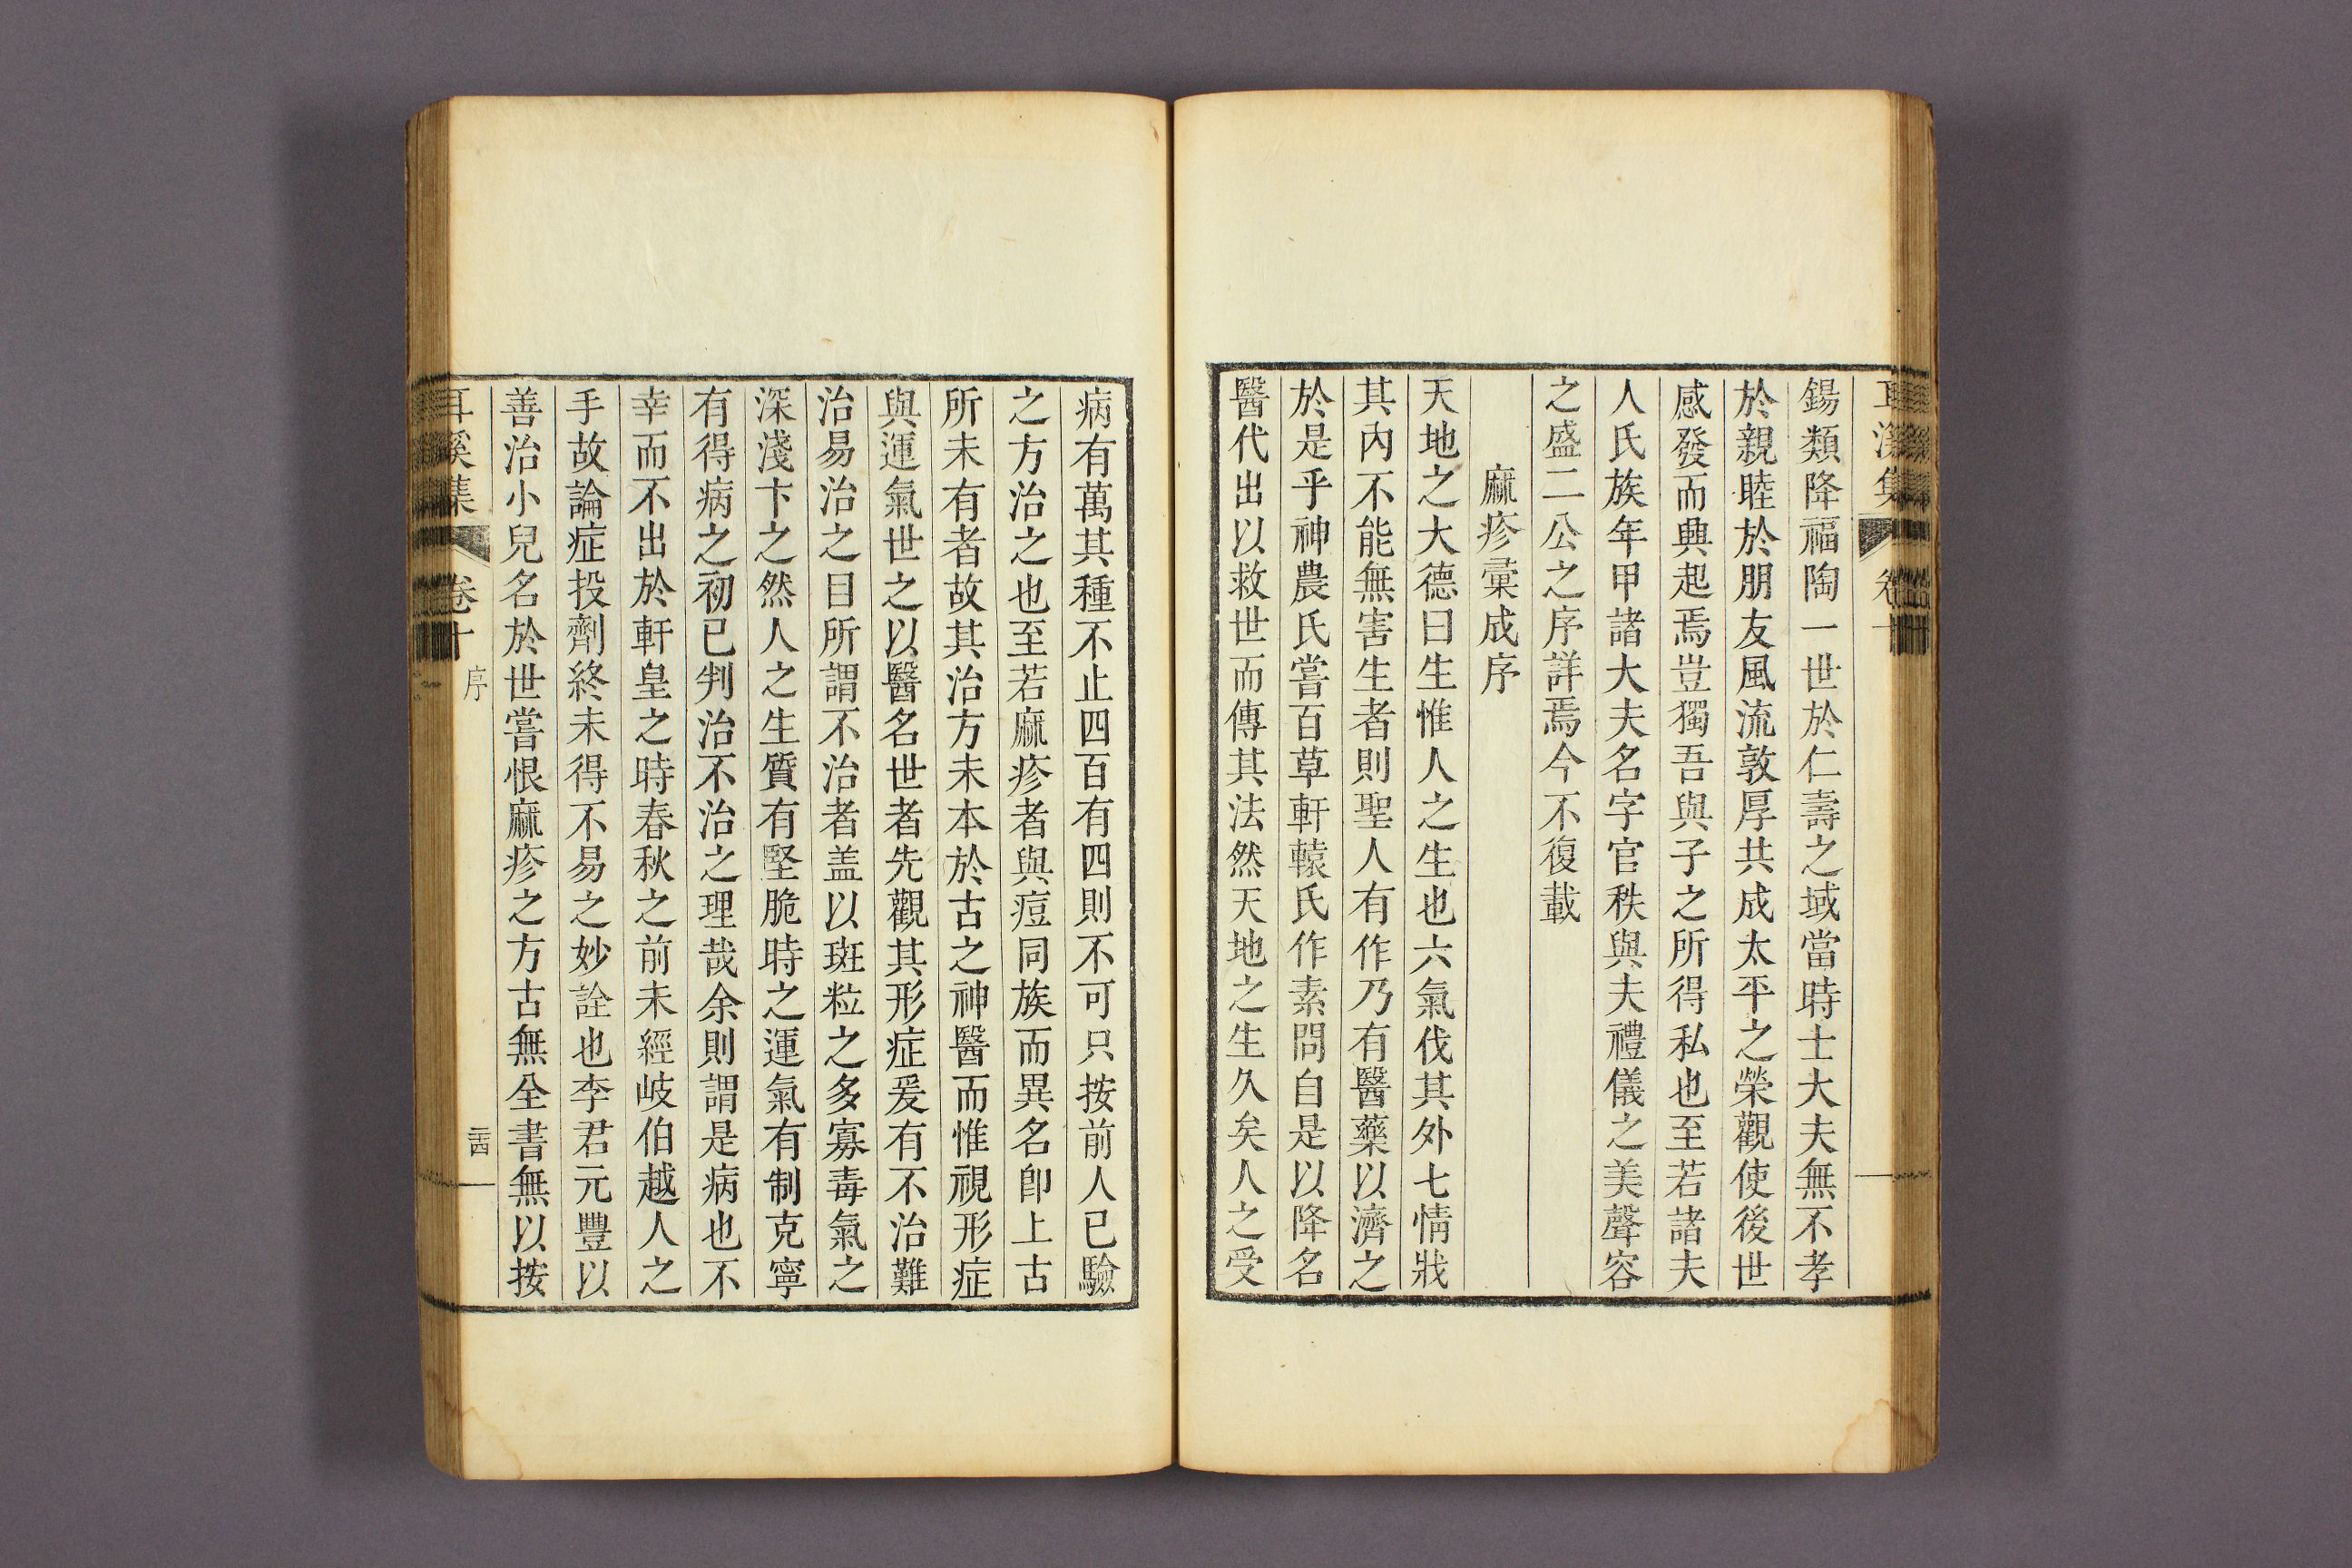 耳溪集 卷十
錫類降福陶一世於仁壽之域當時士大夫無不孝
於親睦於朋友風流敦厚共成太平之榮觀使後世
感發而興起焉豈獨吾與子之所得私也至若諸夫
人氏族年甲諸大夫名字官秩與夫禮儀之美聲容
之盛二公之序詳焉今不復載
麻疹彙成序
天地之大德曰生惟人之生也六氣伐其外七情戕
其內不能無害生者則聖人有作乃有醫藥以濟之
於是乎神農氏嘗百草軒轅氏作素問自是以降名
醫代出以救世而傳其法然天地之生久矣人之受
病有萬其種不止四百有四則不可只按前人已驗
之方治之也至若麻疹者與痘同族而異名卽上古
所未有者故其治方未本於古之神醫而惟視形症
與運氣世之以醫名世者先觀其形症爰有不治難
治易治之目所謂不治者盖以斑粒之多寡毒氣之
深淺卞之然人之生質有堅脆時之運氣有制克寧
有得病之初已判治不治之理哉余則謂是病也不
幸而不出於軒皇之時春秋之前未經岐伯越人之
手故論症投劑終未得不易之妙詮也李君元豐以
善治小兒名於世嘗恨麻疹之方古無全書無以按
耳溪集 卷十 序 二十四